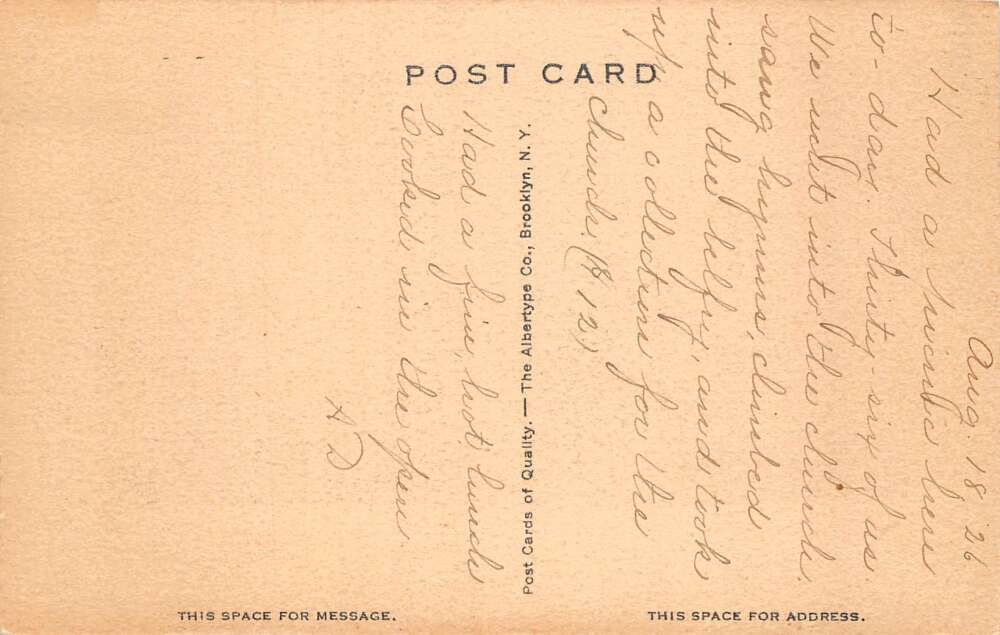 POST CARD
Aug. 18 '26
Had a picnic here
to-day. Thirty-six of us.
We went into the church.
sang hymns, climbed
into the belfry, and took
up a collection for the
church. ($12)
Had a fine, hot lunch
Cooked in the open
A D
Post Cards of Quality. — The Albertype Co., Brooklyn, N. Y.
THIS SPACE FOR MESSAGE.
THIS SPACE FOR ADDRESS.